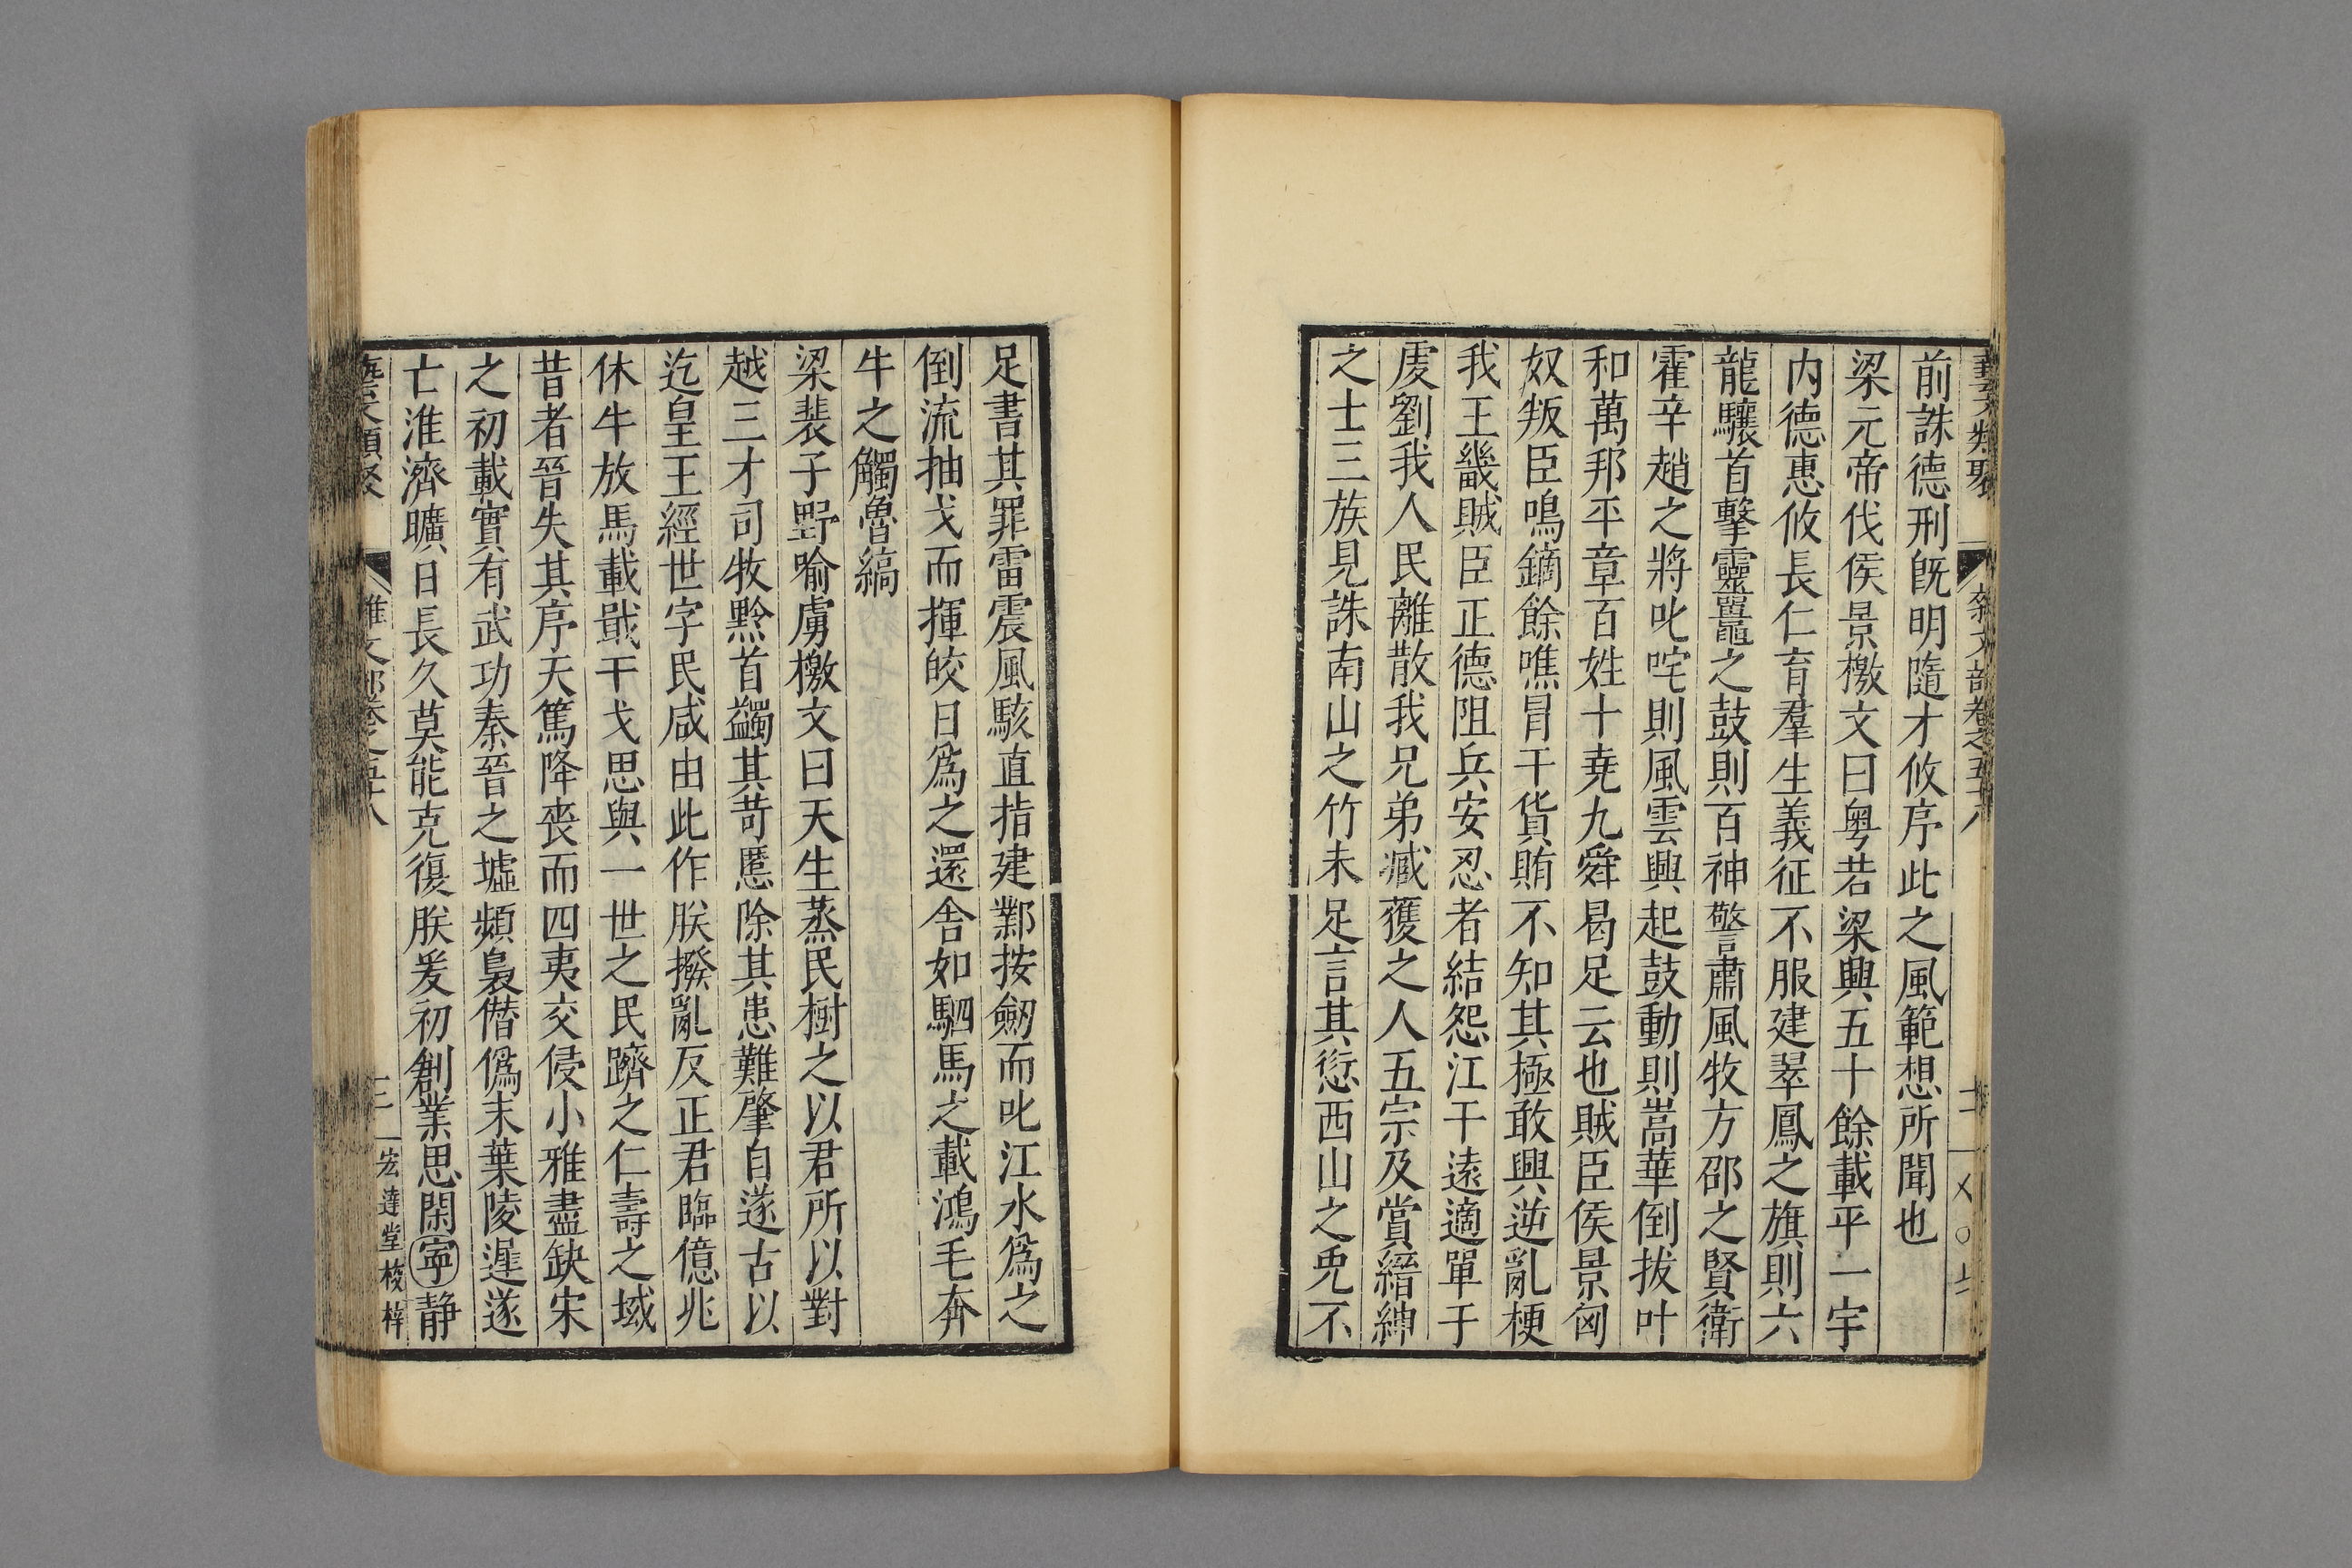 前誅德刑旣明隨才攸序此之風範想所聞也
梁元帝伐侯景檄文曰粤若梁興五十餘載平一宇
内德惠攸長仁育羣生義征不服建翠鳳之旗則六
龍驤首擊靈鼉之鼓則百神警肅風牧方邵之賢衛
霍辛趙之將叱咤則風雲興起鼓動則嵩華倒拔叶
和萬邦平章百姓十堯九舜曷足云也賊臣侯景匈
奴叛臣鳴鏑餘噍冐干貨賄不知其極敢興逆亂梗
我王畿賊臣正德阻兵安忍者結怨江干遠適單于
虔劉我人民離散我兄弟臧獲之人五宗及賞縉紳
之士三族見誅南山之竹未足言其愆西山之兎不
足書其罪雷震風駭直指建鄴按劒而叱江水爲之
倒流抽戈而揮皎日爲之還舍如駟馬之載鴻毛奔
牛之觸魯縞
梁裴子野喻虜檄文曰天生蒸民樹之以君所以對
越三才司牧黔首蠲其苛慝除其患難肇自遂古以
迄皇王經世字民咸由此作朕撥亂反正君臨億兆
休牛放馬載戢干戈思與一世之民躋之仁壽之域
昔者晉失其序天篤降喪而四夷交侵小雅盡缺宋
之初載實有武功秦晉之墟頻裊僭僞末葉陵遲遂
亡淮濟曠日長久莫能克復朕爰初創業思閑寧静
雜文部卷之五十八
三
宏達堂校梓